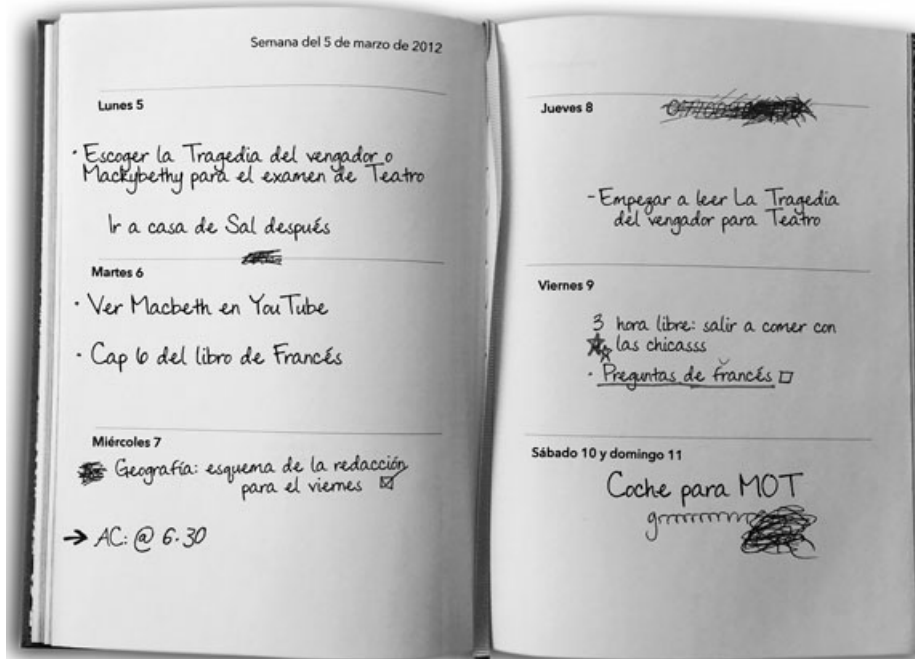 Semana del 5 de marzo de 2012
Lunes 5
· Escoger la Tragedia del vengador o
Mackybethy para el examen de Teatro
Ir a casa de Sal después
Martes 6
· Ver Macbeth en YouTube
· Cap 6 del libro de Francés
Miércoles 7
Geografía: esquema de la redacción
para el viernes ☑
→ AC: @ 6.30
Jueves 8
- Empezar a leer La Tragedia
del vengador para Teatro
Viernes 9
3 hora libre: salir a comer con
las chicasss
· Preguntas de francés □
Sábado 10 y domingo 11
Coche para MOT
grrrrrrrr